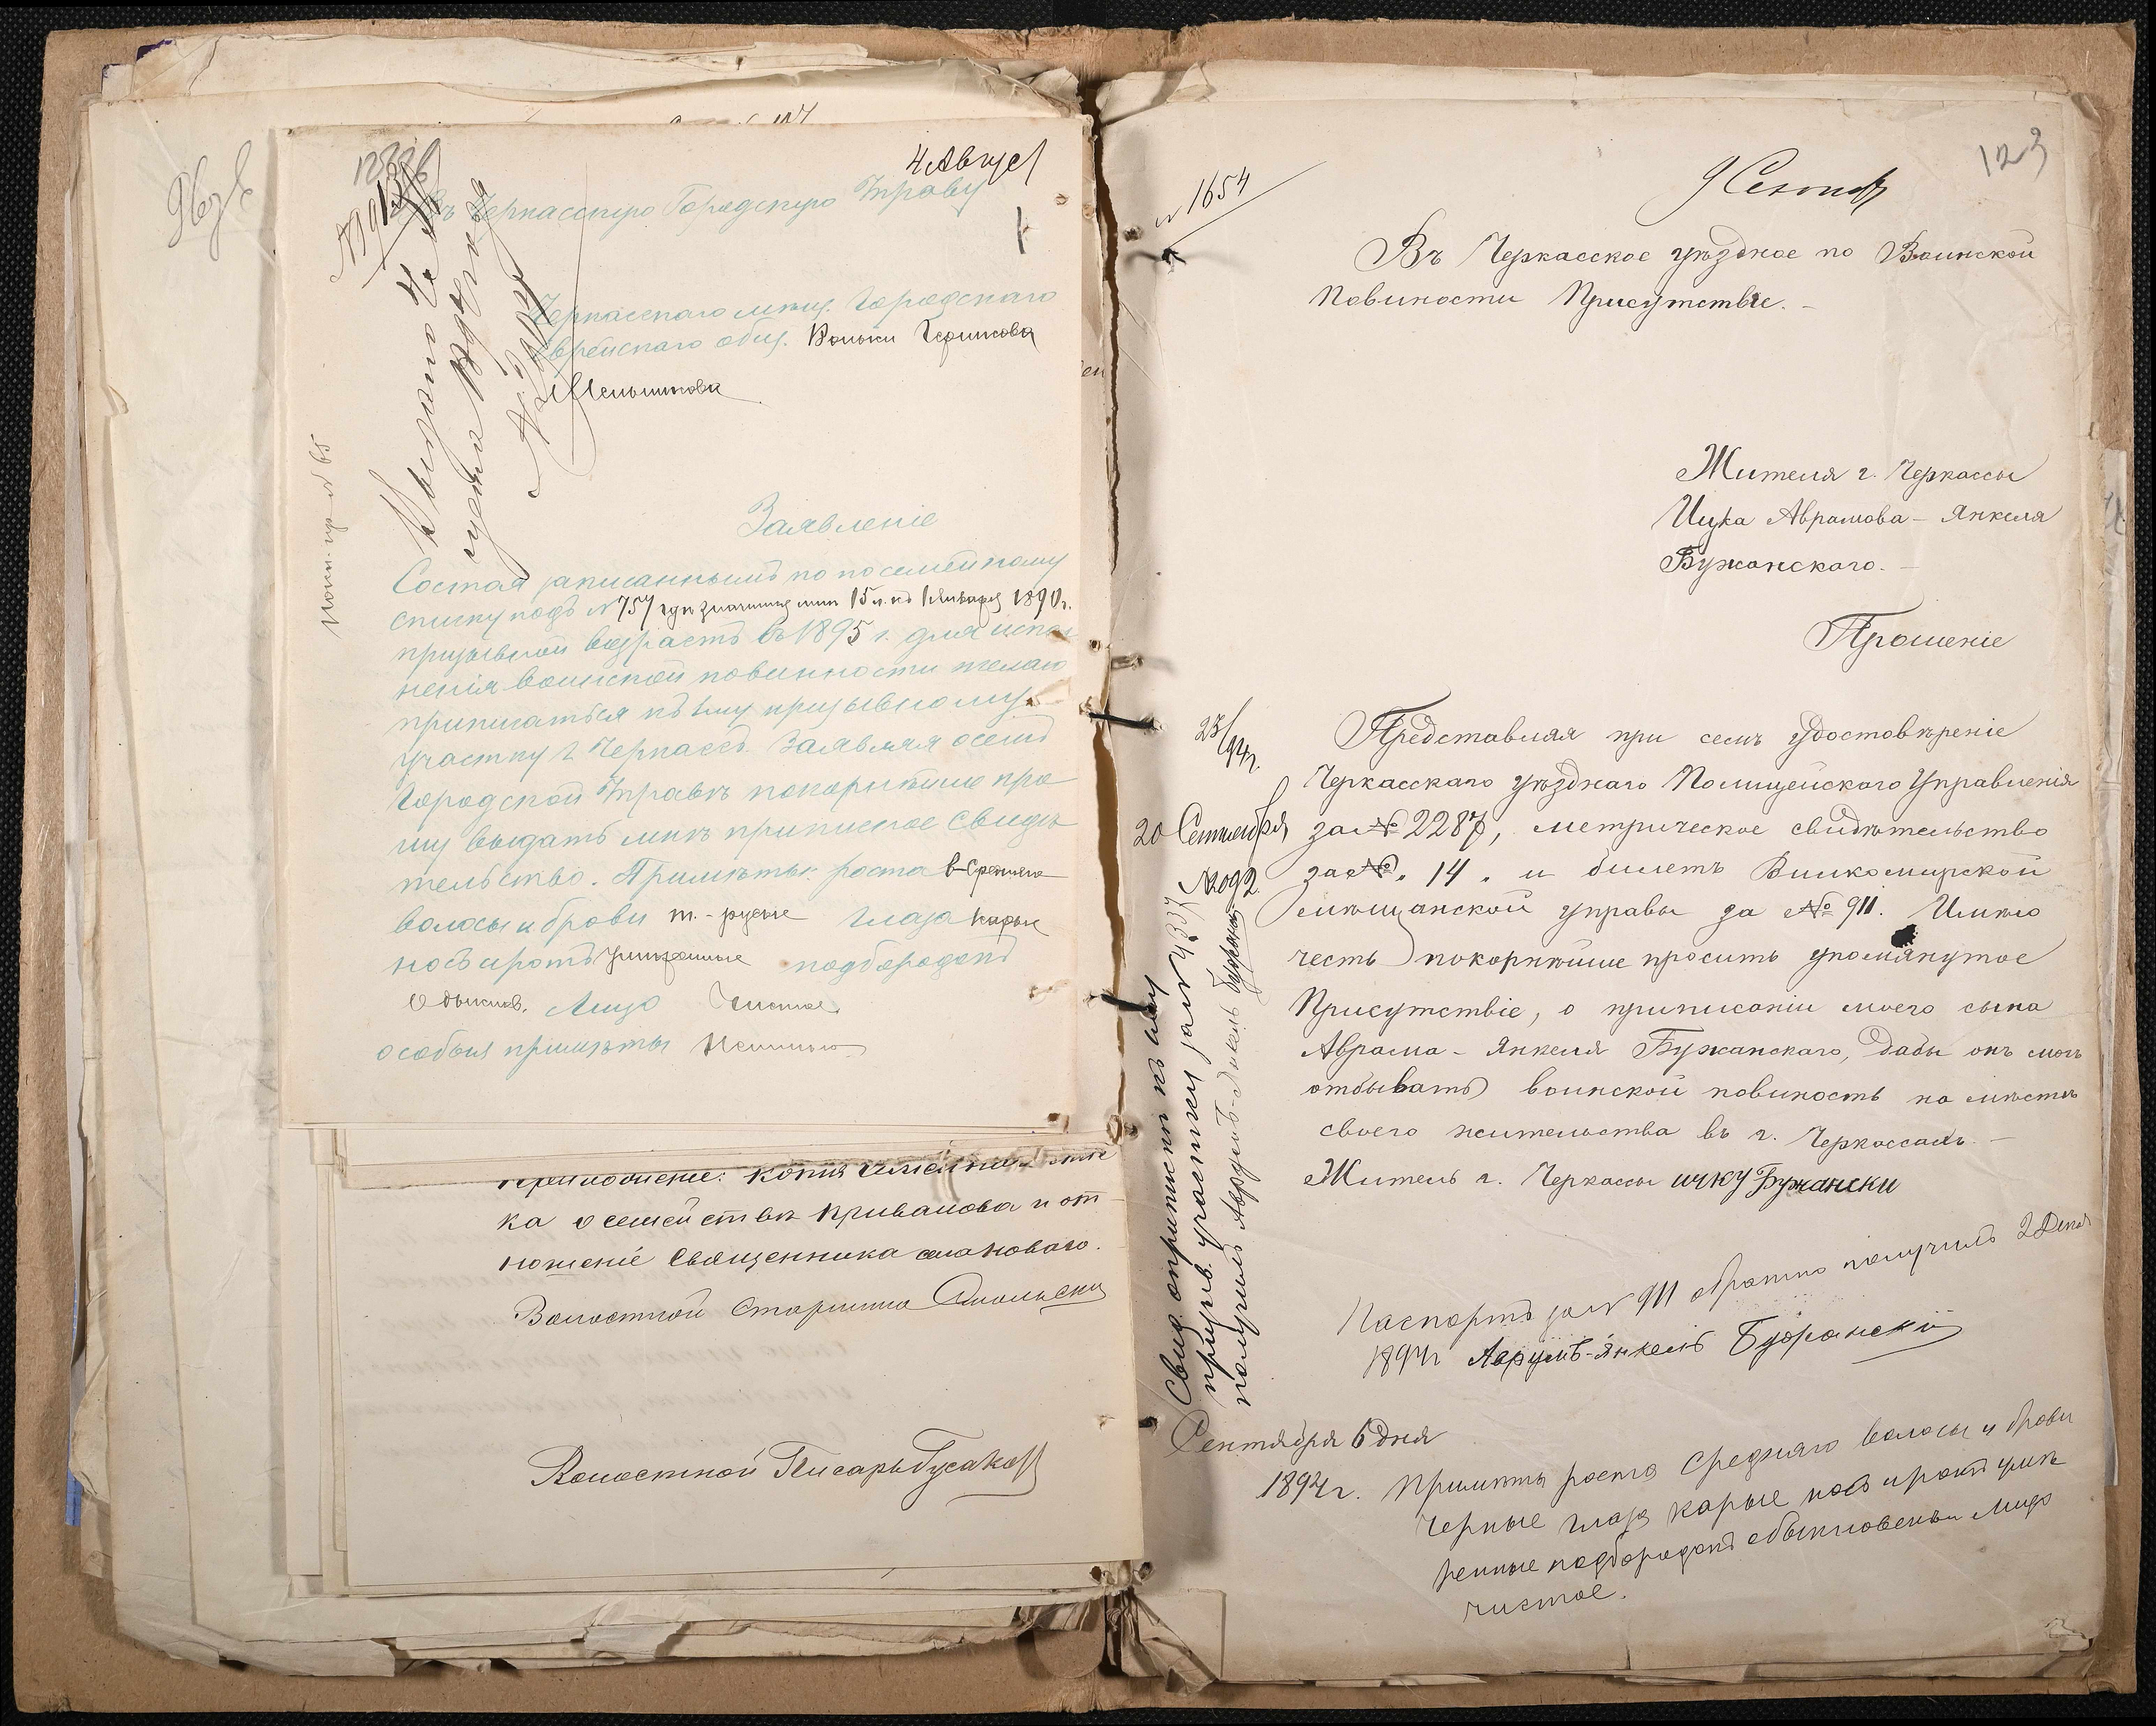 4 Август
Въ Черкасскую Городскую Управу
Черкасскаго мѣщ. Городскаго
Еврейскаго общ. Вольки Гершкова
Мельникова
Заявленіе
Состоя записаннымъ по посемейному
списку подъ № 757 гдѣ значится мнѣ 15 л. къ 1 Января 1890 г.
призывной возрастъ въ 1895 г. для испол
ненія воинской повинности желаю
приписаться къ 1му призывному
участку г. Черкассъ. Заявляя о семъ
Городской Управѣ покорнѣйше про
шу выдать мнѣ приписное свидѣ
тельство. Примѣты: роста в-средняго
волосы и брови т.-русые глаза карые
носъ и ротъ умѣренные подбородокъ
обыкнов. Лицо чистое
особыя примѣты
Приложеніе: копія
ка о семействѣ Привалова и от
ношеніе Священника
Волостной Старшина
Волостной Писарь Гусаков
123
№ 1654
9 Сентяб
Въ Черкасское уѣздное по Воинской
Повиности Присутствіе. -
Жителя г. Черкассы
Ицка Аврамова - Янкеля
Бужанскаго. -
Прошеніе
Представляя при семъ удостовѣреніе
Черкасскаго уѣзднаго Полицейскаго Управленія
за № 2287, метрическое свидѣтельство
за №. 14. и билетъ Вилкомирской
мѣщанской управы за № 911. Имѣю
честь покорнѣйше просить упомянутое
Присутствіе, о приписаніи моего сына
Аврама - Янкеля Бужанскаго, дабы онъ могъ
отбывать воинской повиность на мѣстѣ
своего жительства въ г. Черкассахъ. -
Житель г. Черкассы ицку Бужански
23/94 г.
20 Сентября
№ 2092
Свид. о припискѣ къ 1му
призыв. участку за № 4337
получилъ Аврумъ-Янкель Бужанскій
Паспортъ за № 911 обратно получилъ 2 Декаб
1894 г Аврумъ-Янкель Бужранскій
Сентября 6 дня
1894 г. Примѣты роста Средняго волосы и брови
черные глаза карые носъ и ротъ умѣ
ренные подбородокъ обыкновенный Лицо
чистое.